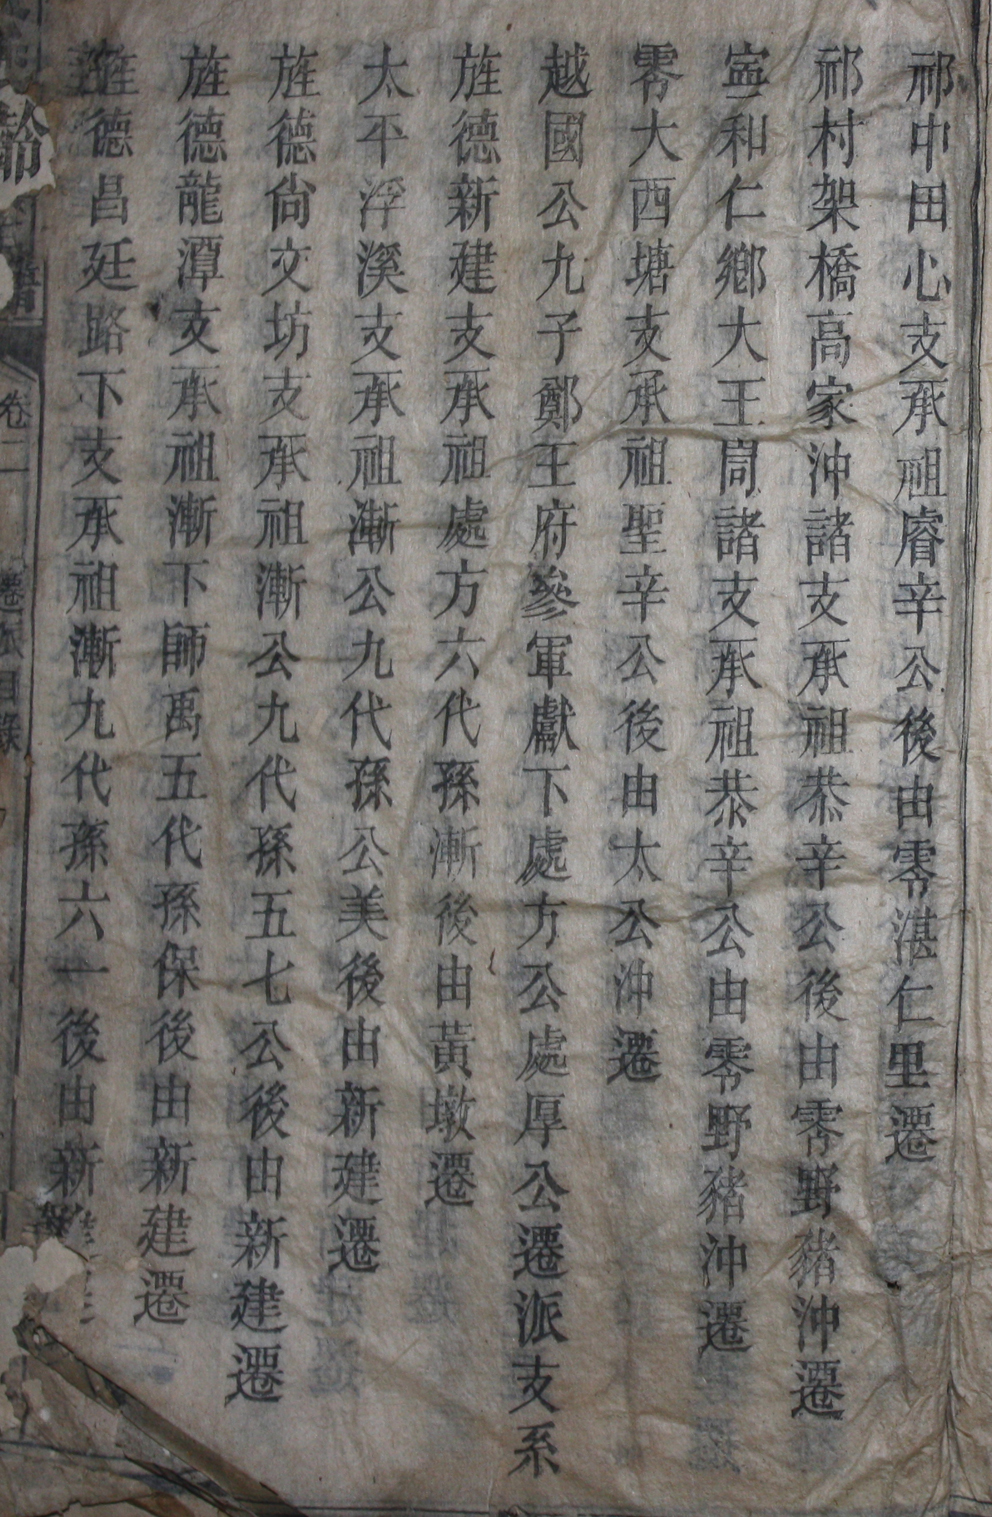 祁中田心支承祖睿辛公後由零湛仁里遷
祁村架橋高家沖諸支承祖恭辛公後由零野豬沖遷
寍和仁鄉大王㞧諸支承祖恭辛公由零野豬沖遷
零大西塘支承祖聖辛公後由太公沖遷
越國公九子鄭王府參軍獻下處方公處厚公遷派支系
旌德新建支承祖處方六代孫漸後由黃墩遷
太平浮溪支承祖漸公九代孫公美後由新建遷
旌德尙文坊支承祖漸公九代孫五七公後由新建遷
旌德龍潭支承祖漸下師禹五代孫保後由新建遷
旌德昌廷路下支承祖漸九代孫六一後由新
卷二
遷派目錄